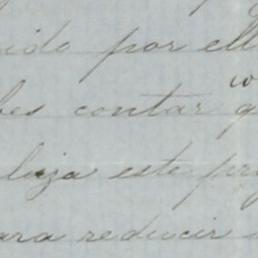 ido por ell
bes contar q
liza este pr
ara reducir